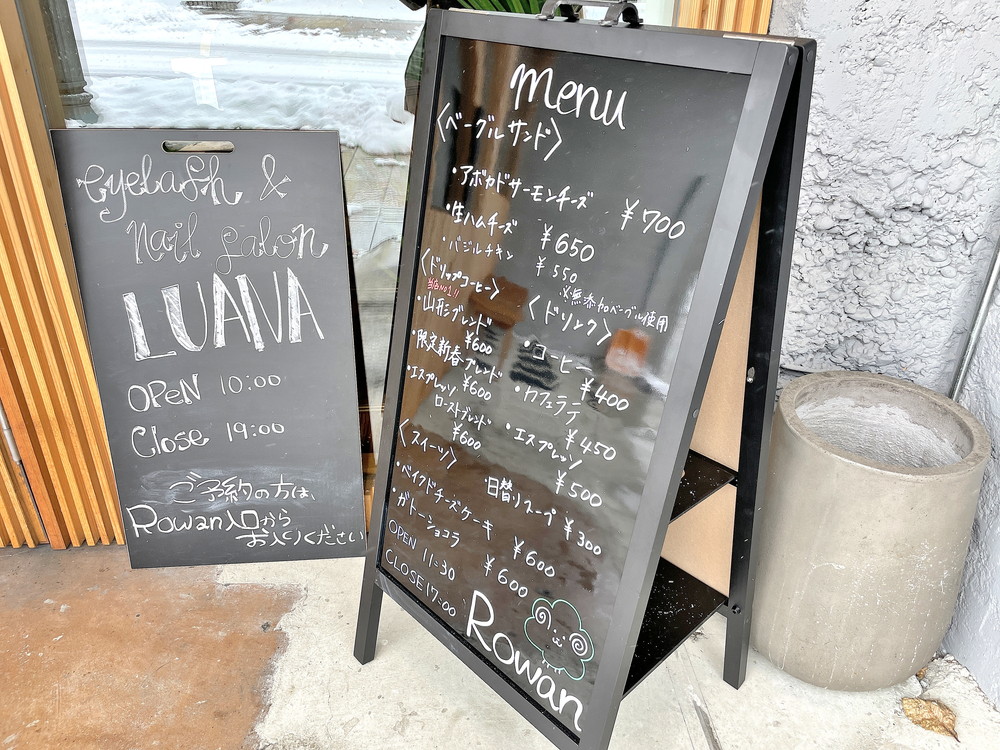 eyelash &
Nail Salon
LUANA
OPEN 10:00
Close 19:00
ご予約の方は、
Rowan入口から
お入りください
menu
〈ベーグルサンド〉
・アボカドサーモンチーズ ¥700
・生ハムチーズ ¥650
・バジルチキン ¥550
※無添加ベーグル使用
〈ドリップコーヒー〉
当店No.1!!
・山形ブレンド
¥600
・限定新春ブレンド
¥600
・エスプレッソ
ローストブレンド
¥600
〈ドリンク〉
・コーヒー
¥400
・カフェラテ
¥450
・エスプレッソ
¥500
日替りスープ ¥300
〈スイーツ〉
・ベイクドチーズケーキ
¥600
・ガトーショコラ
¥600
OPEN 11:30
CLOSE 17:00
Rowan